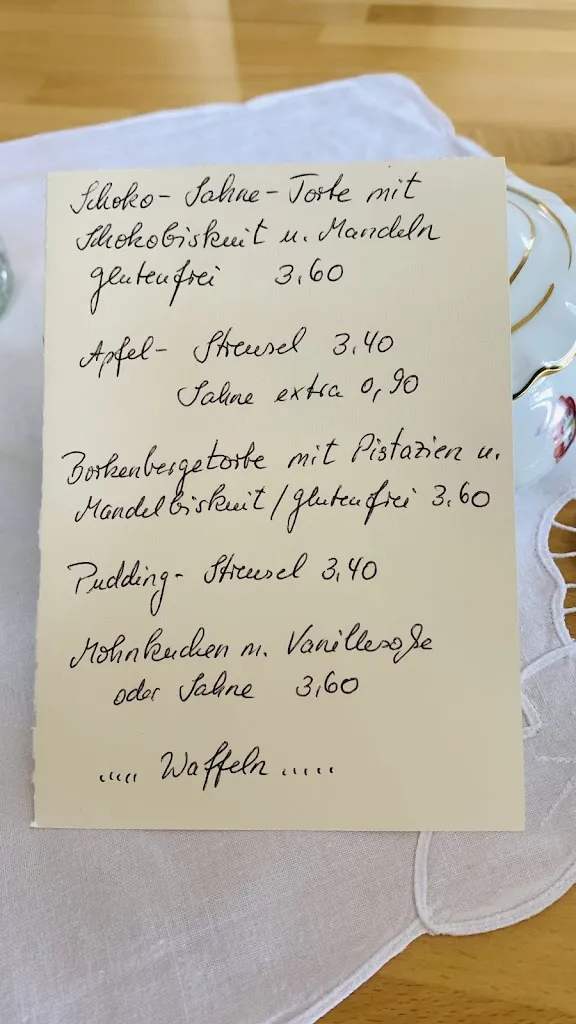 Schoko-Sahne-Torte mit
Schokobiskuit u. Mandeln
glutenfrei 3,60
Apfel- Streusel 3,40
Sahne extra 0,90
Borkenbergetorte mit Pistazien u.
Mandelbiskuit/glutenfrei 3.60
Pudding- Streusel 3,40
Mohnkuchen m. Vanillesoße
oder Sahne 3,60
..... Waffeln .....